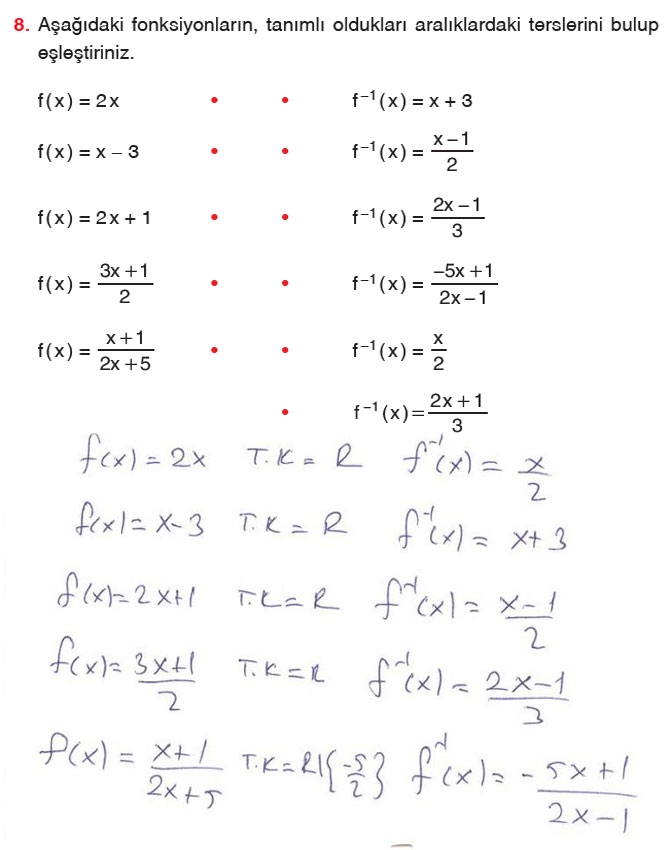 8. Aşağıdaki fonksiyonların, tanımlı oldukları aralıklardaki terslerini bulup
eşleştiriniz.
f(x) = 2x • • f⁻¹(x) = x + 3
f(x) = x – 3 • • f⁻¹(x) = (x – 1)/2
f(x) = 2x + 1 • • f⁻¹(x) = (2x – 1)/3
f(x) = (3x + 1)/2 • • f⁻¹(x) = (–5x + 1)/(2x – 1)
f(x) = (x + 1)/(2x + 5) • • f⁻¹(x) = x/2
• f⁻¹(x) = (2x + 1)/3
f(x) = 2x T.K = R f⁻¹(x) = x/2
f(x) = x-3 T.K = R f⁻¹(x) = x+3
f(x) = 2x+1 T.K = R f⁻¹(x) = (x-1)/2
f(x) = (3x+1)/2 T.K = R f⁻¹(x) = (2x-1)/3
f(x) = (x+1)/(2x+5) T.K = R\{-5/2} f⁻¹(x) = (-5x+1)/(2x-1)